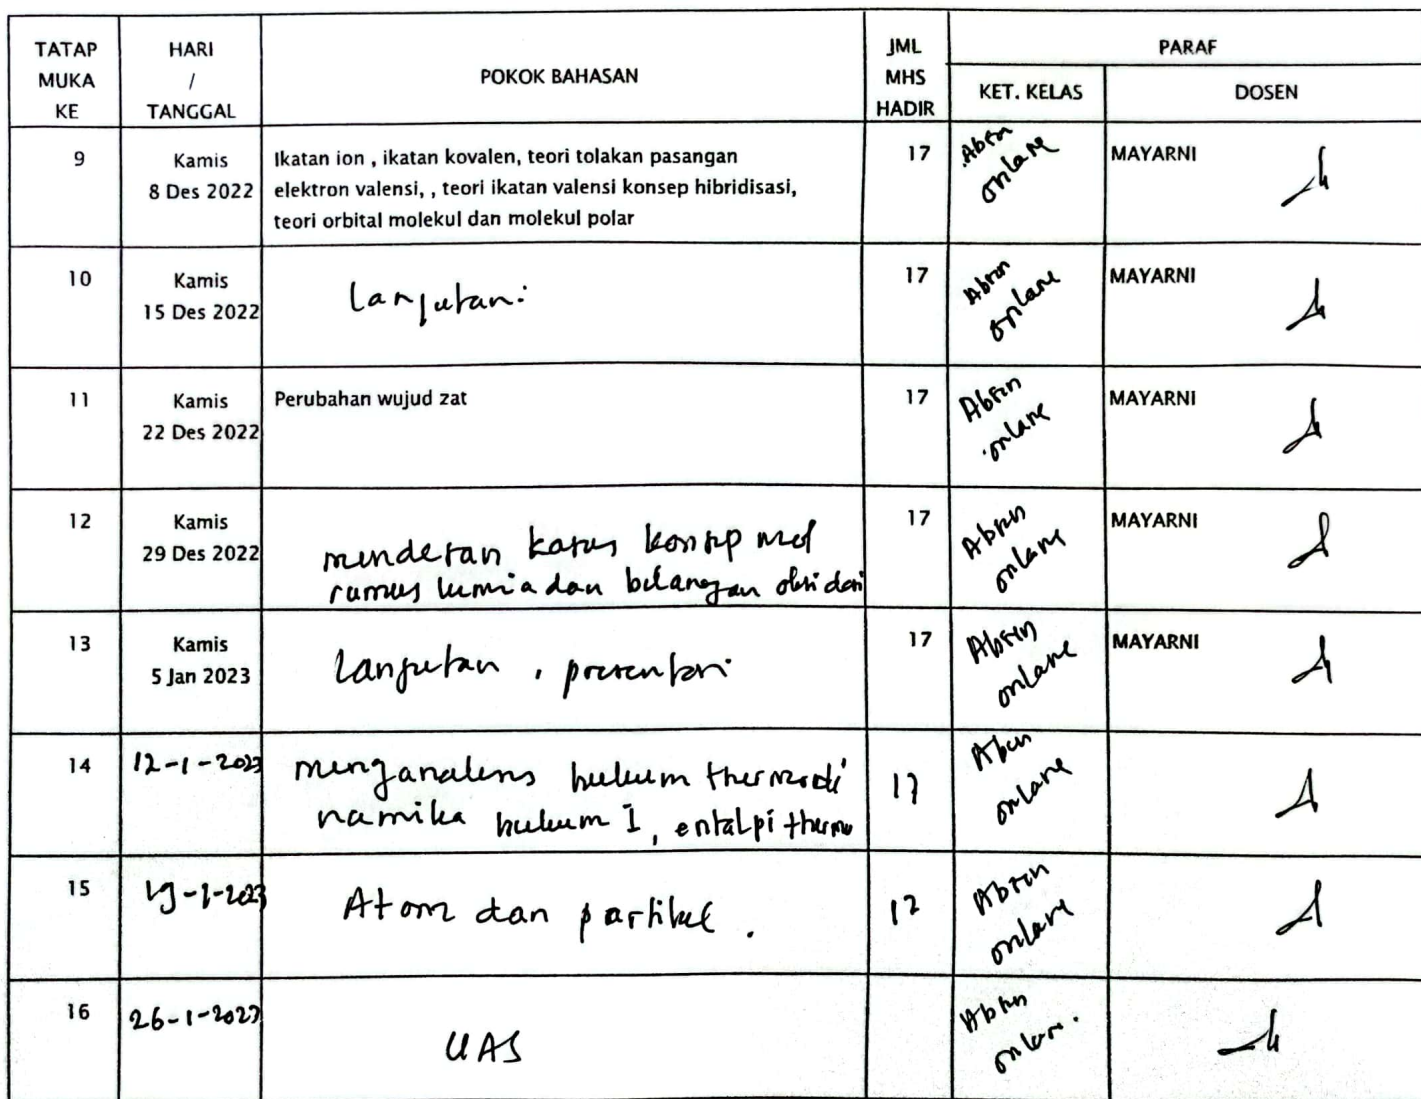 TATAP MUKA KE
HARI / TANGGAL
POKOK BAHASAN
JML MHS HADIR
PARAF
KET. KELAS
DOSEN
9
Kamis
8 Des 2022
Ikatan ion , ikatan kovalen, teori tolakan pasangan
elektron valensi, , teori ikatan valensi konsep hibridisasi,
teori orbital molekul dan molekul polar
17
Absen
onlane
MAYARNI
10
Kamis
15 Des 2022
Lanjutan
17
Absen
onlane
MAYARNI
11
Kamis
22 Des 2022
Perubahan wujud zat
17
Absen
onlane
MAYARNI
12
Kamis
29 Des 2022
konsep mol
rumus kimia dan bilangan oksidasi
17
Absen
onlane
MAYARNI
13
Kamis
5 Jan 2023
Lanjutan , presentasi
17
Absen
onlane
MAYARNI
14
12-1-2023
menganalisis hukum thermodi
namika hukum I, entalpi thermo
17
Absen
onlane
15
19-1-2023
Atom dan partikel .
Absen
onlane
16
26-1-2023
UAS
Absen